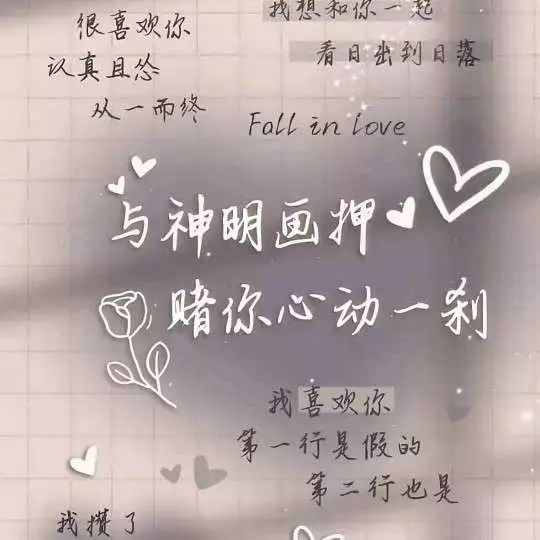 很喜欢你
认真且怂
从一而终
我想和你一起
看日出到日落
Fall in love
与神明画押
赌你心动一刹
我喜欢你
第一行是假的
第二行也是
我攒了